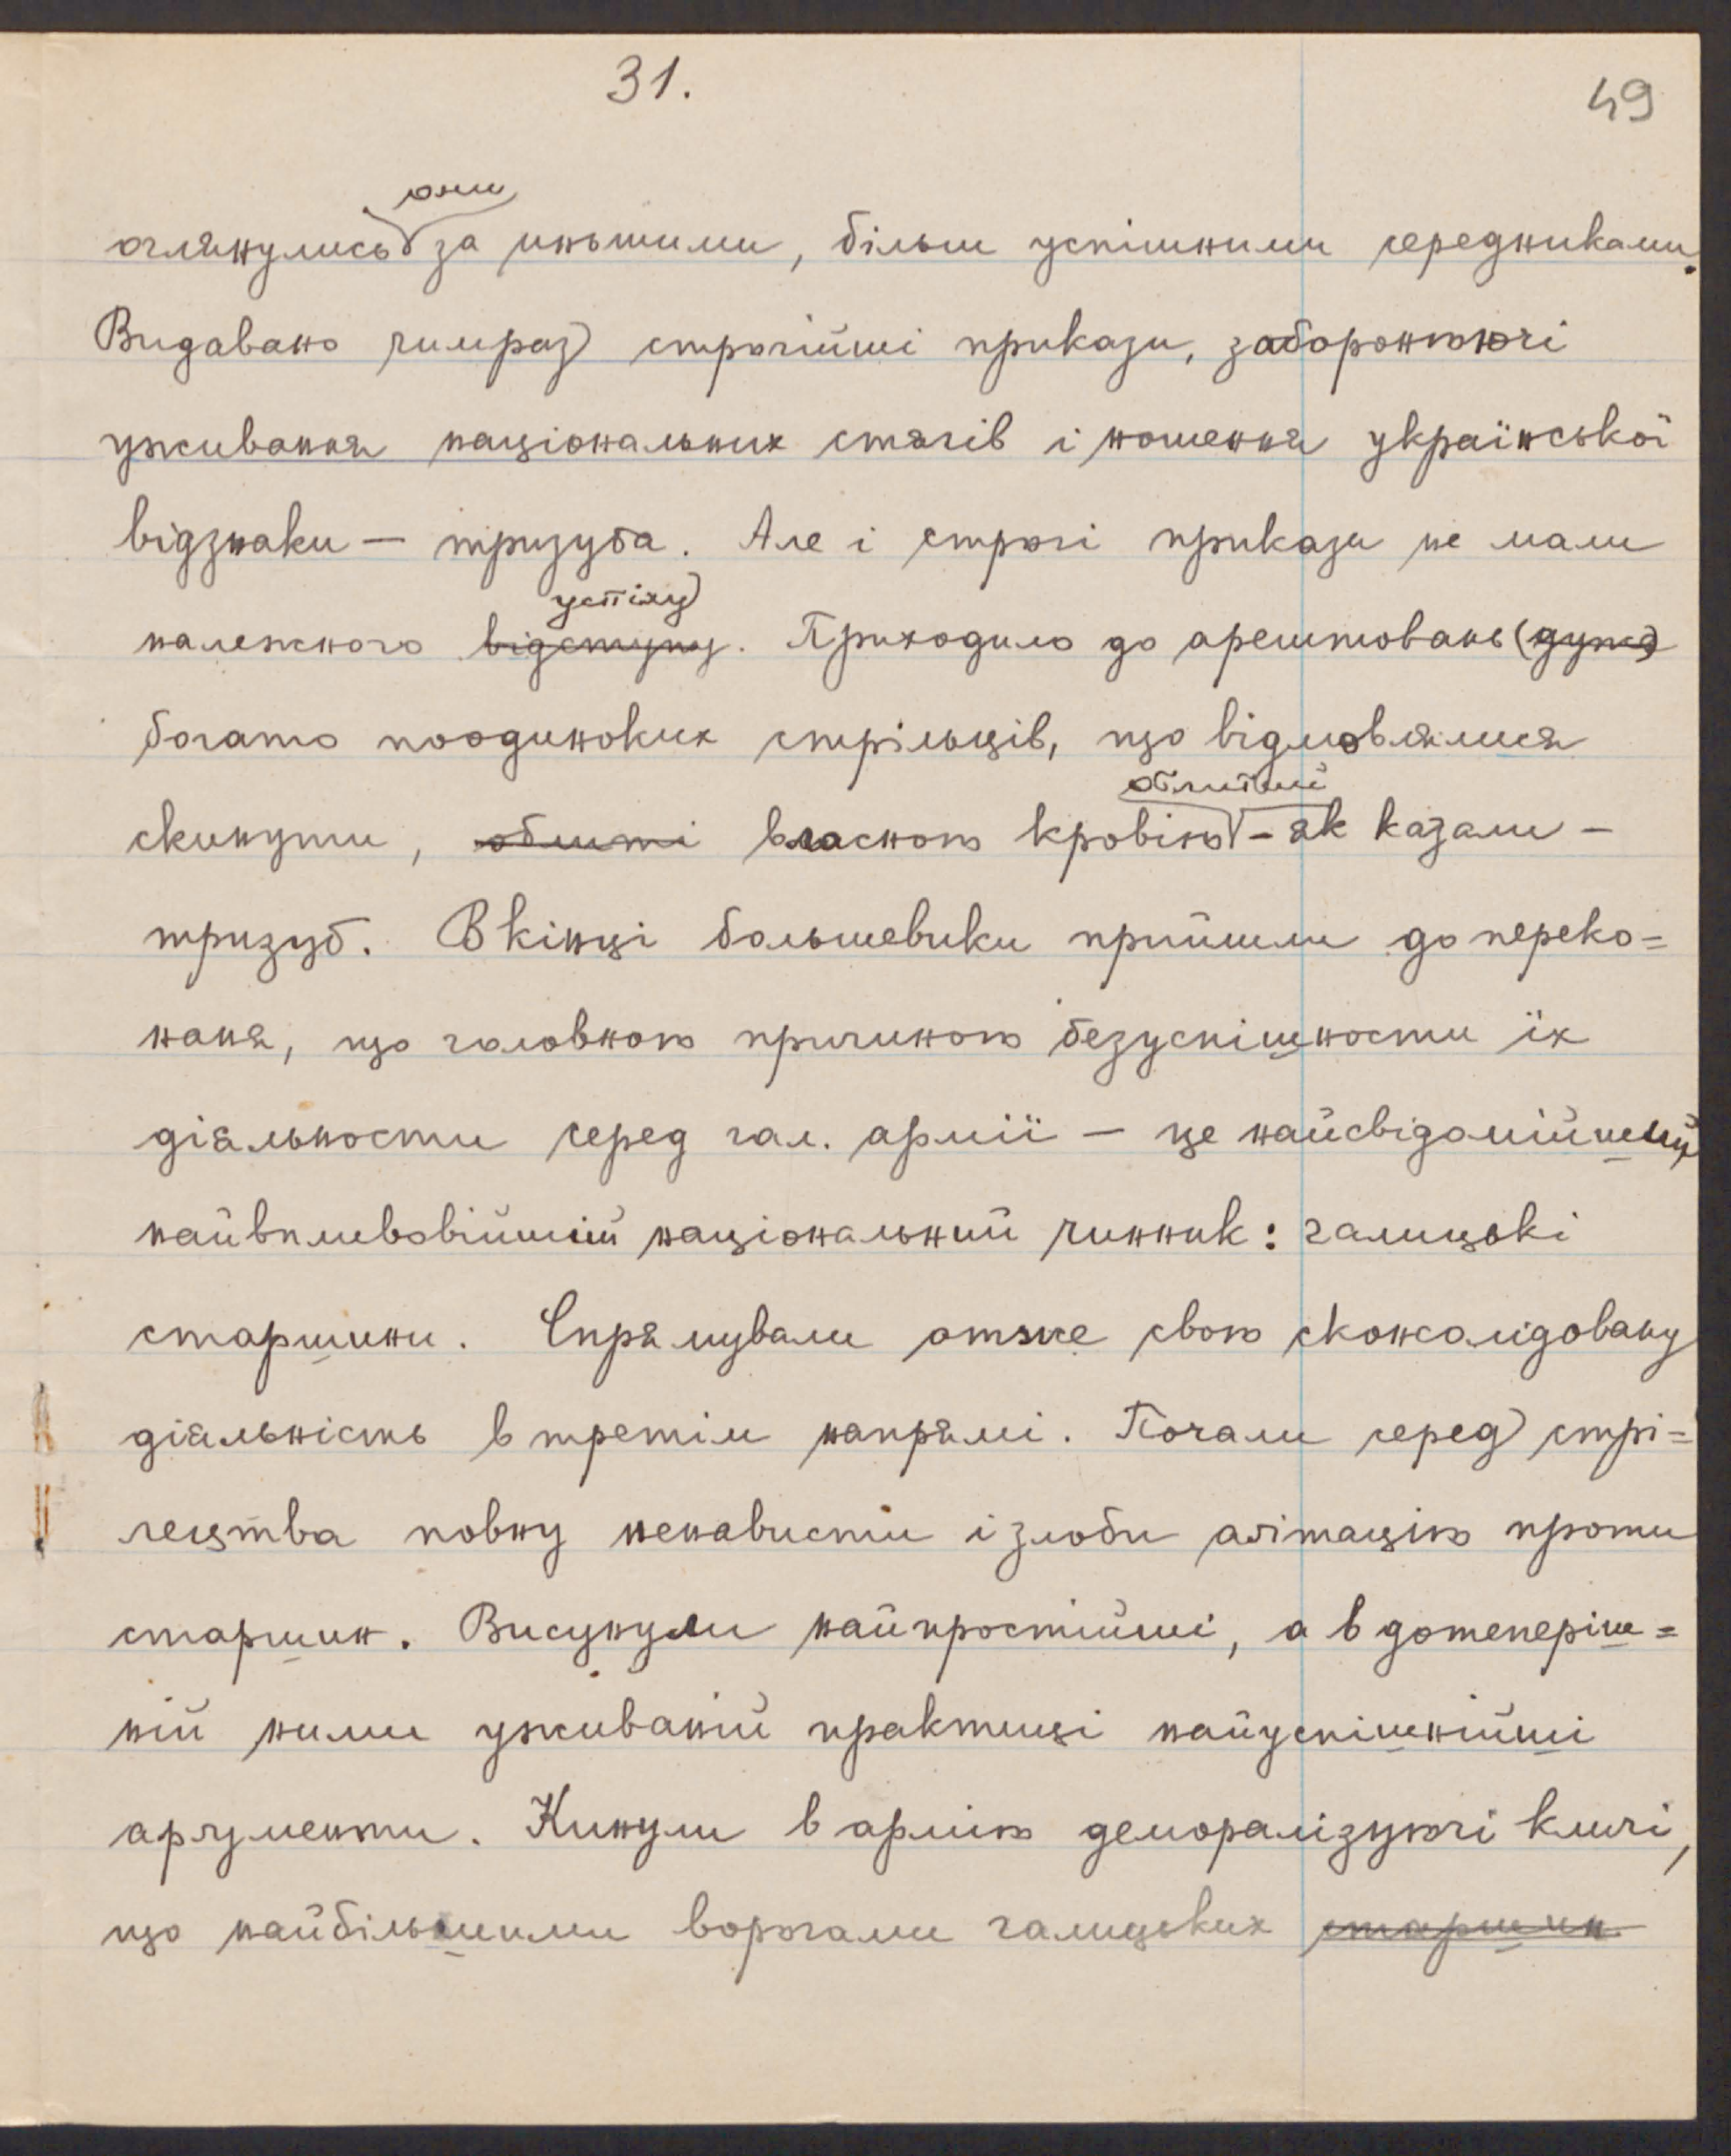 31.
49
они
оглянулись за иньшими, більш успішними середниками.
Видавано чимраз строгійші прикази, забороняючі
уживання національних стягів і ношення української
відзнаки — тризуба. Але і строгі прикази не мали
успіху
належного відступу. Приходило до арештовань (дуже
богато поодиноких стрільців, що відмовлялися
облитий
скинути, облиті власною кровію - як казали -
тризуб. В кінці большевики прийшли до переко=
наня, що головною причиною безуспішности їх
діяльности серед гал. армії — це найсвідомійший,
найвпливовійший національний чинник: галицькі
старшини. Спрямували отже свою сконсолідовану
діяльність в третім напрямі. Почали серед стрі=
лецтва повну ненависти і злоби агітацію проти
старшин. Висунули найпростійші, а в дотеперіш=
ній ними уживаній практиці найуспішнійші
аргументи. Кинули в армію деморалізуючі кличі,
що найбільшими ворогами галицьких старшин